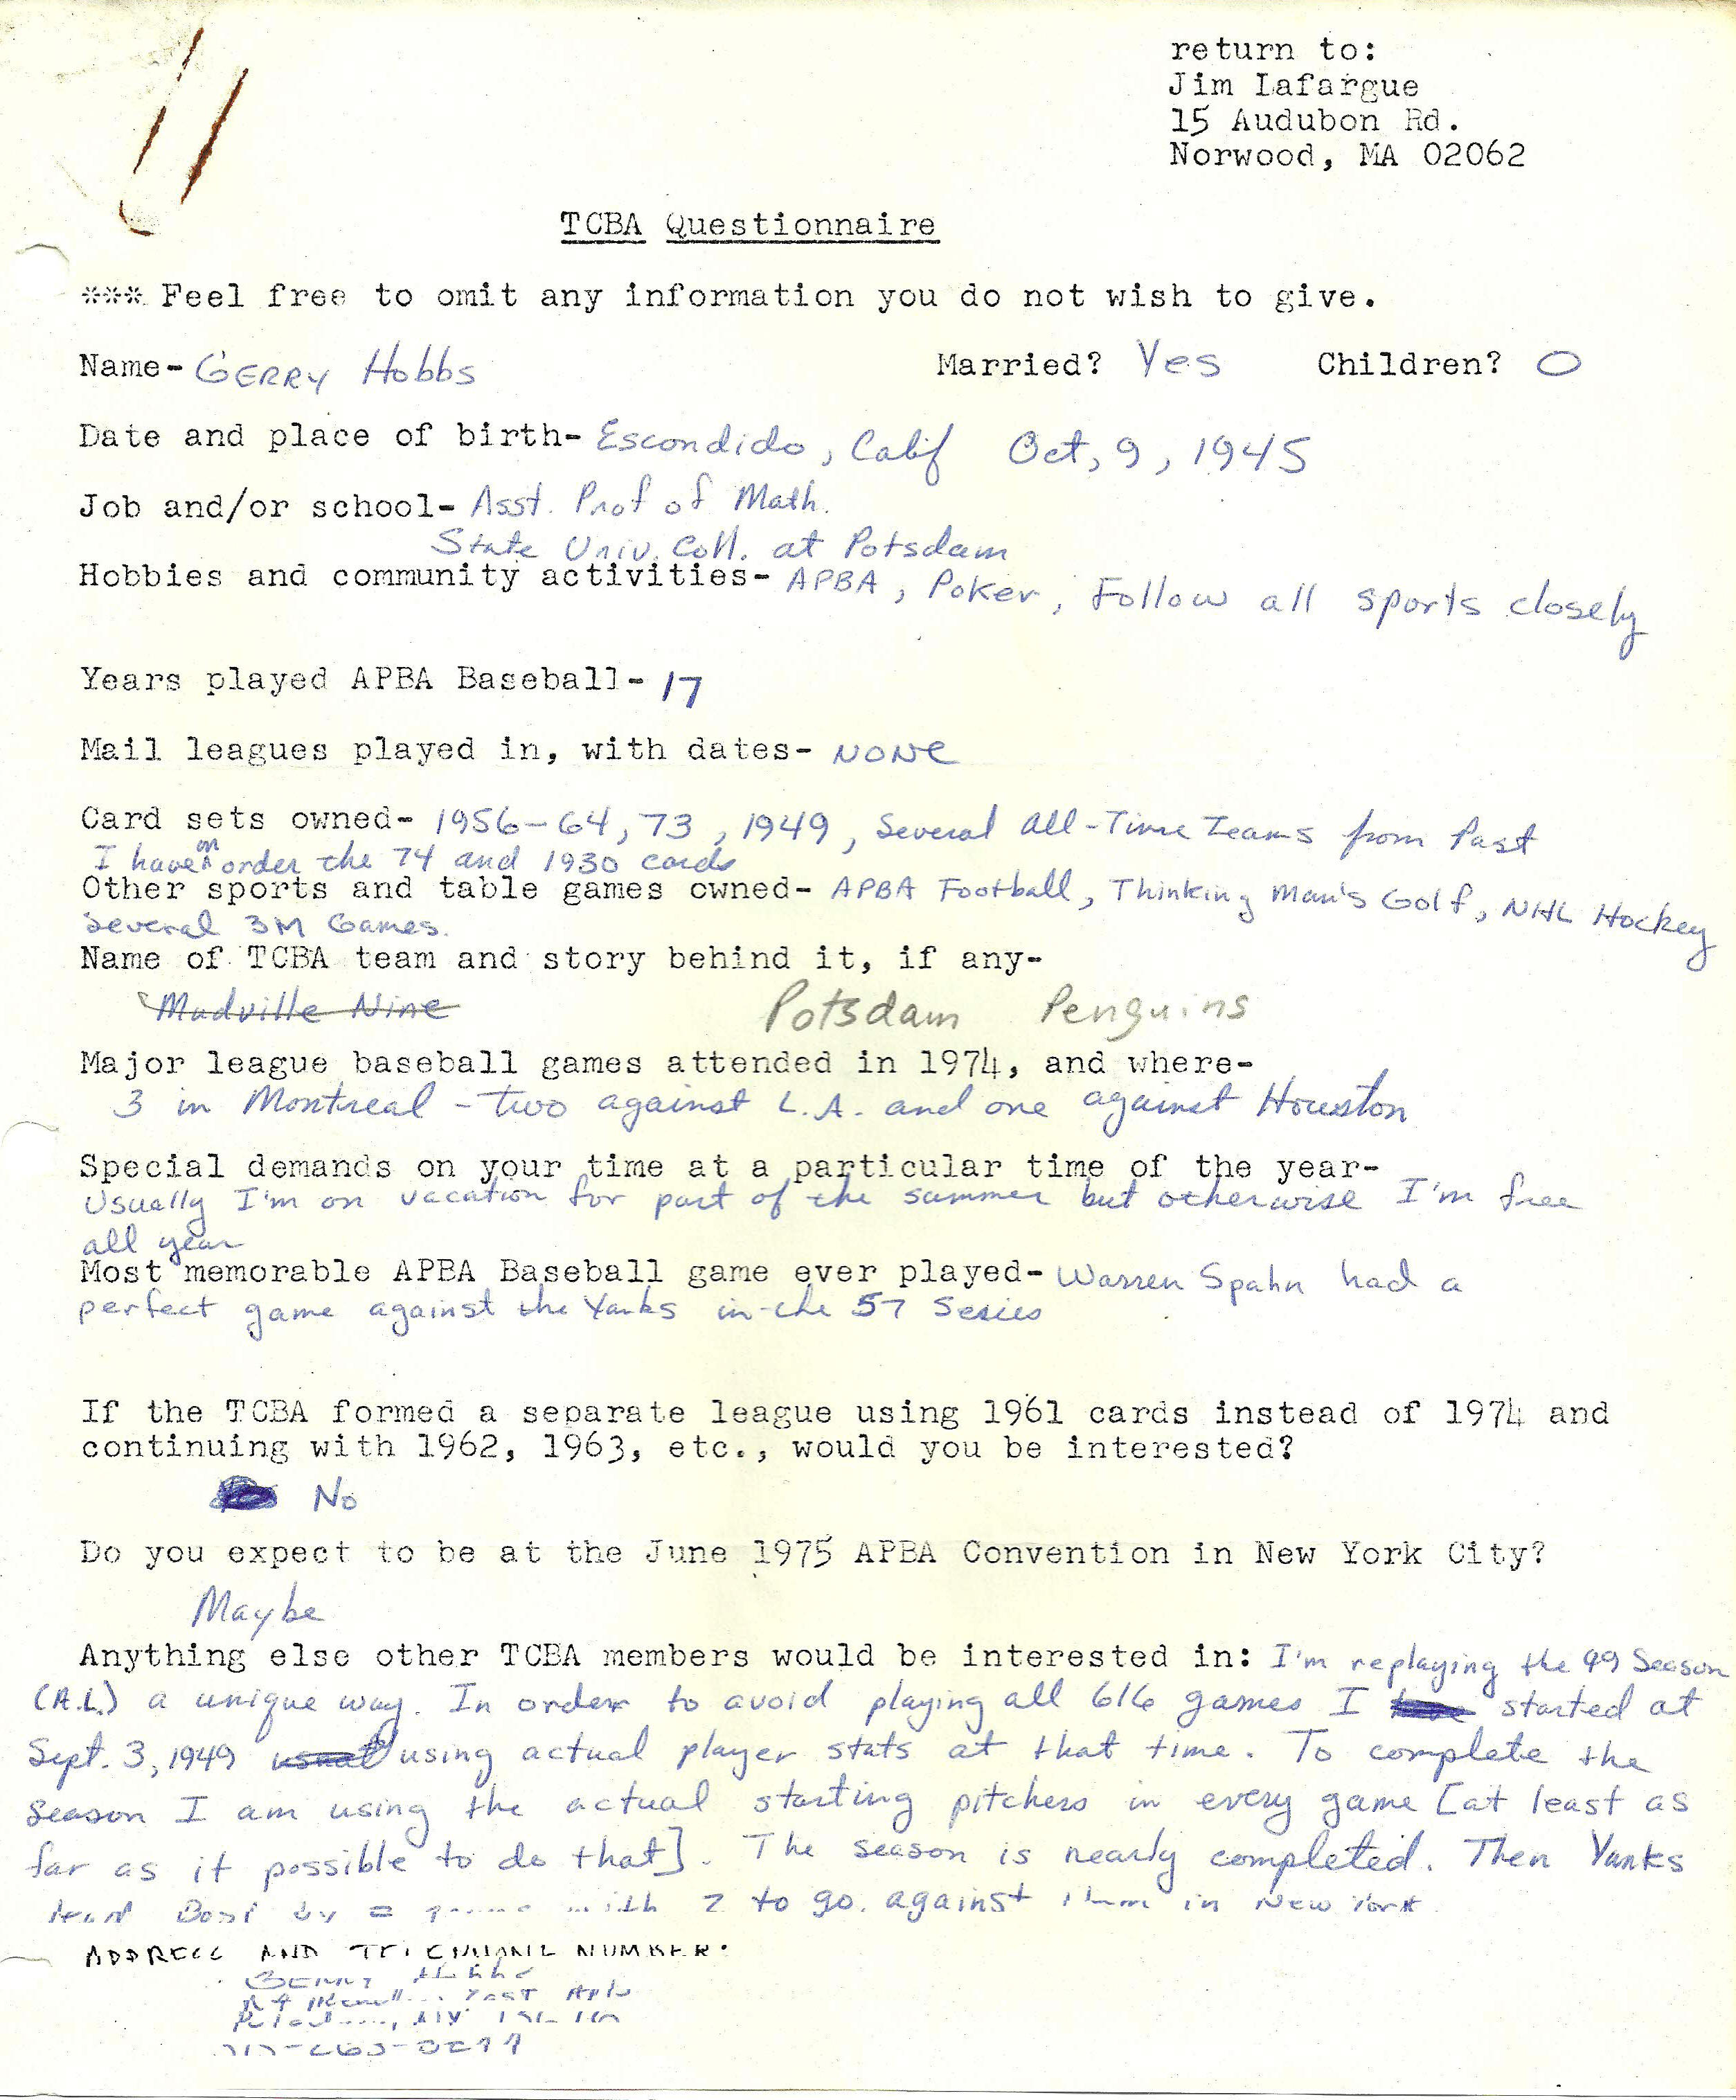 return to:
Jim Lafargue
15 Audubon Rd.
Norwood, MA 02062
TCBA Questionnaire
*** Feel free to omit any information you do not wish to give.
Name- GERRY Hobbs Married? Yes Children? 0
Date and place of birth- Escondido, Calif Oct, 9, 1945
Job and/or school- Asst. Prof of Math.
State Univ. Coll. at Potsdam
Hobbies and community activities- APBA, Poker, Follow all sports closely
Years played APBA Baseball- 17
Mail leagues played in, with dates- NONE
Card sets owned- 1956-64, 73, 1949, Several All-Time Teams from Past
I have on order the 74 and 1930 cards
Other sports and table games owned- APBA Football, Thinking Man's Golf, NHL Hockey
Several 3M Games.
Name of TCBA team and story behind it, if any-
Mudville Nine Potsdam Penguins
Major league baseball games attended in 1974, and where-
3 in Montreal - two against L.A. and one against Houston
Special demands on your time at a particular time of the year-
Usually I'm on vacation for part of the summer but otherwise I'm free
all year
Most memorable APBA Baseball game ever played- Warren Spahn had a
perfect game against the Yanks in the 57 Series
If the TCBA formed a separate league using 1961 cards instead of 1974 and
continuing with 1962, 1963, etc., would you be interested?
No
Do you expect to be at the June 1975 APBA Convention in New York City?
Maybe
Anything else other TCBA members would be interested in: I'm replaying the 49 Season
(A.L.) a unique way. In order to avoid playing all 616 games I started at
Sept. 3, 1949 using actual player stats at that time. To complete the
season I am using the actual starting pitchers in every game [at least as
far as it possible to do that]. The season is nearly completed. Then Yanks
with 2 to go. against them in New York
ADDRESS AND TELEPHONE NUMBER: